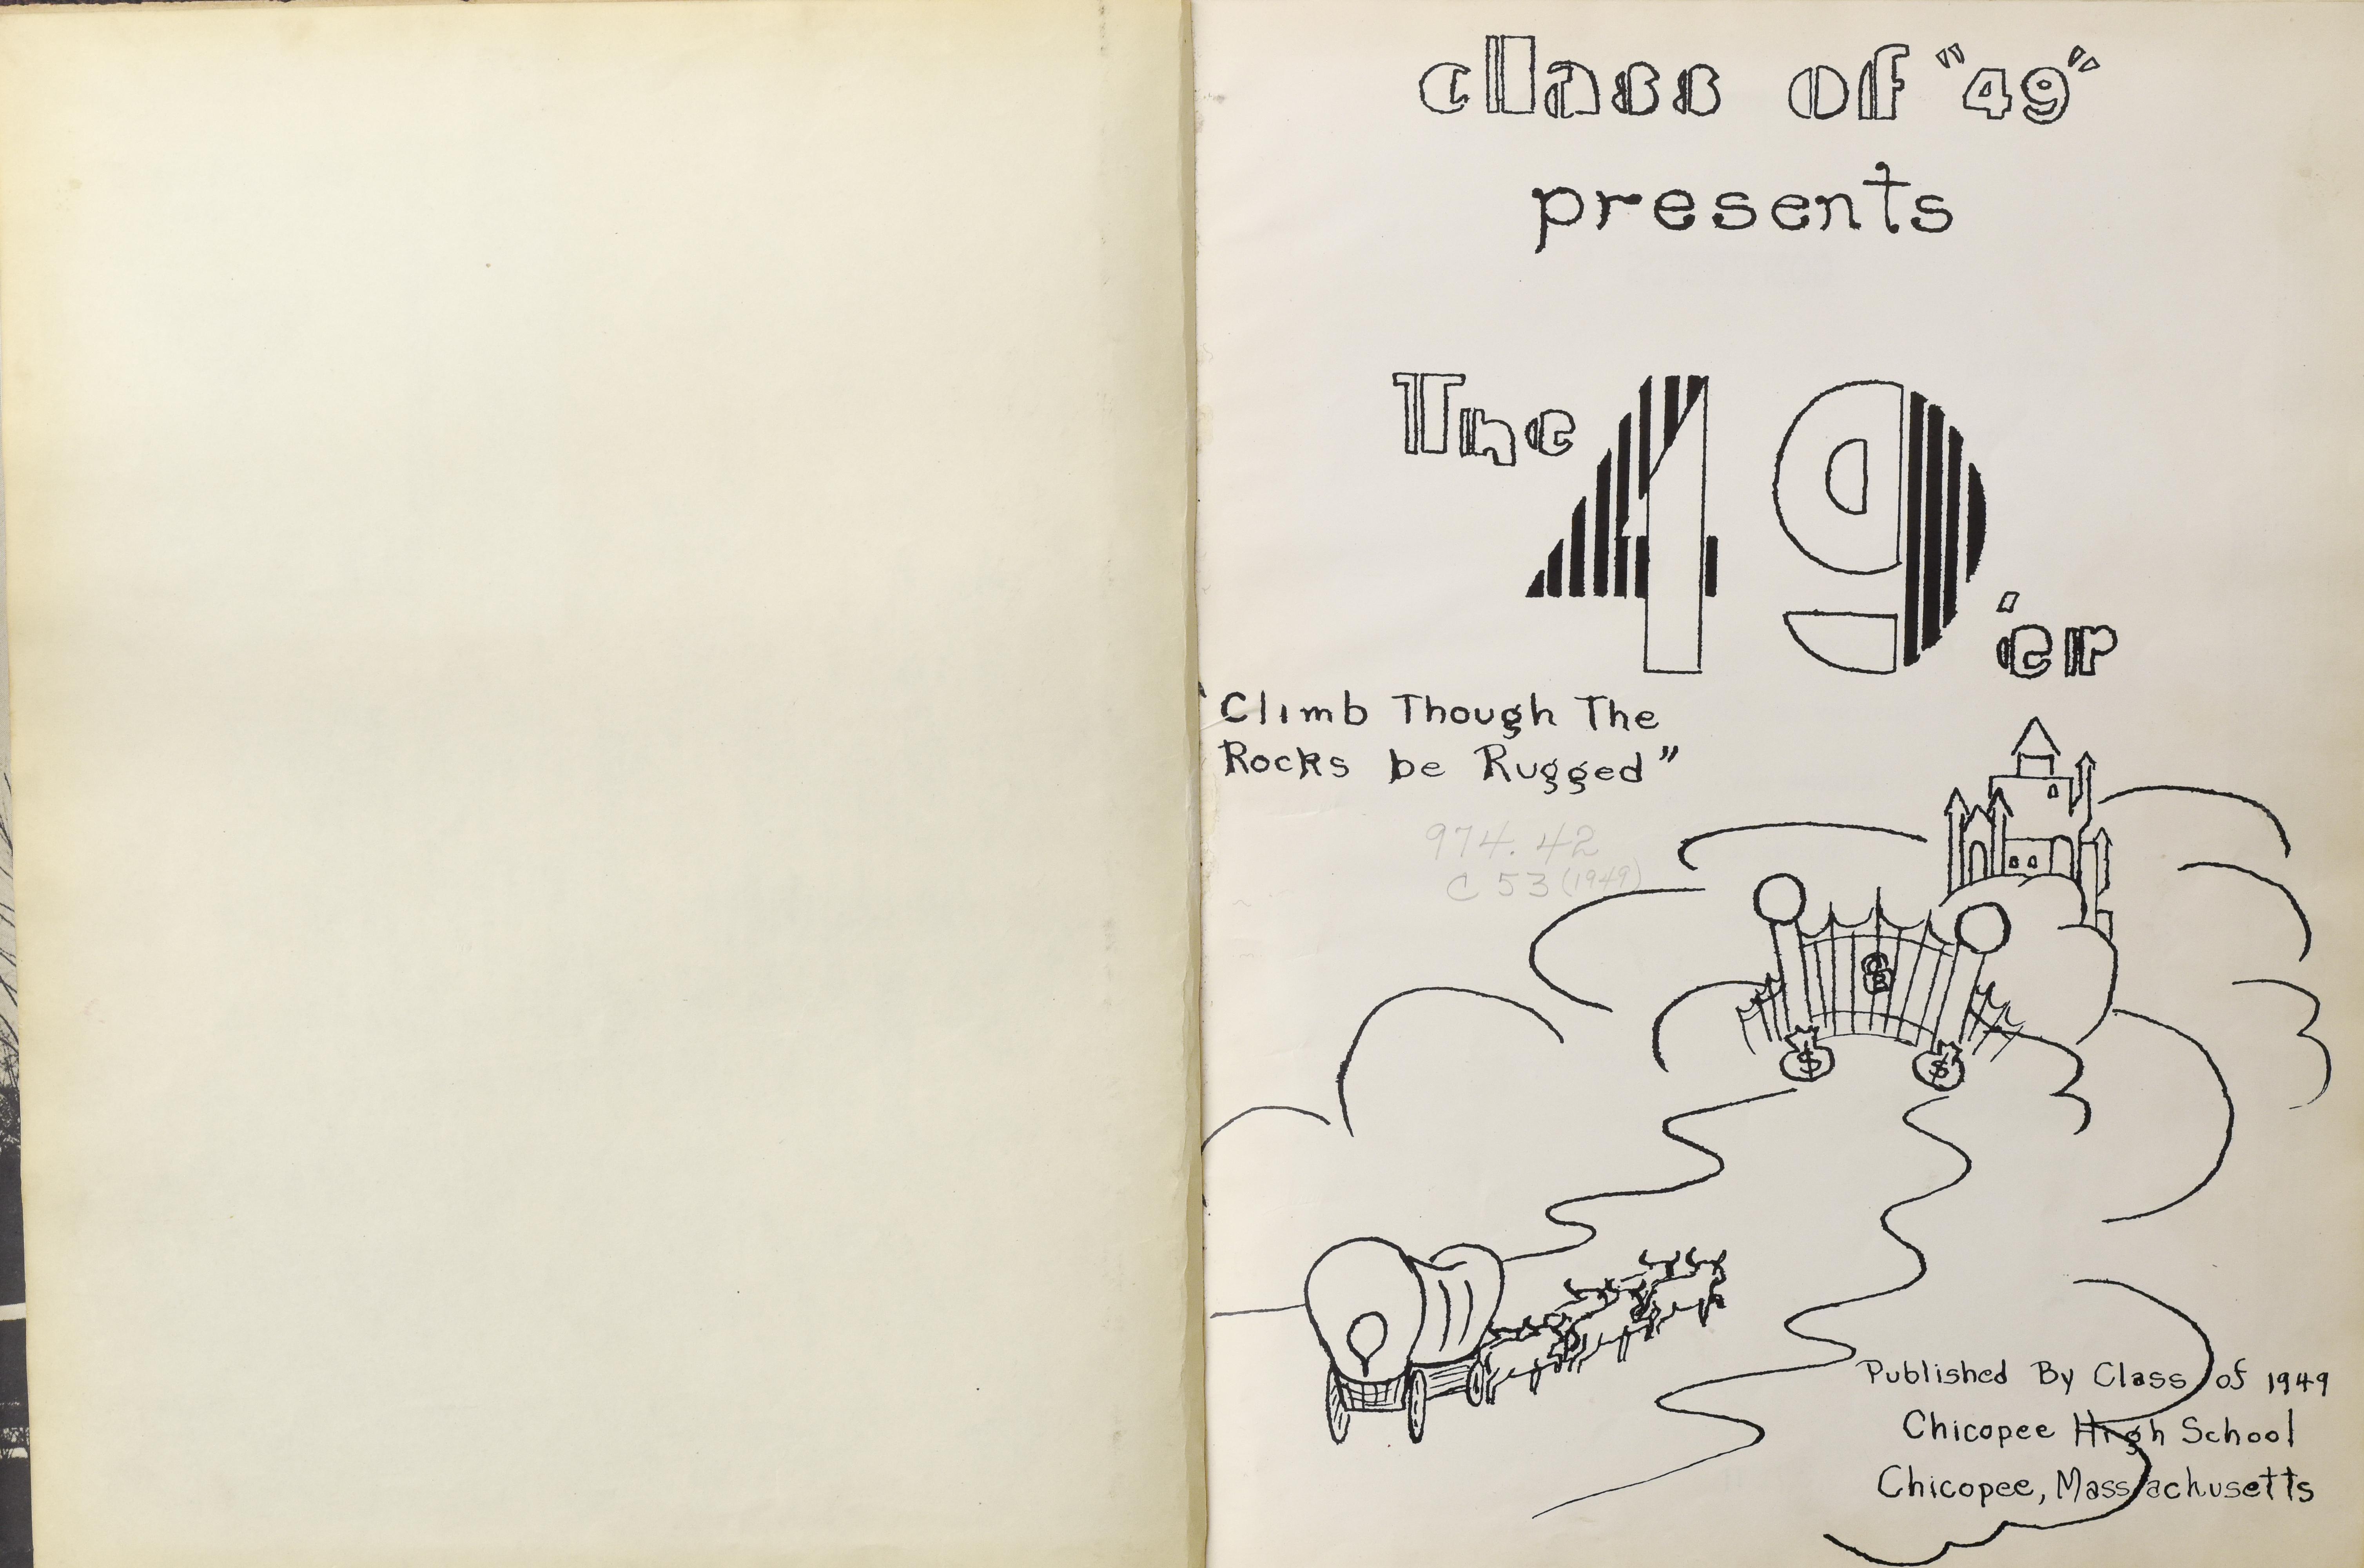 class of "49"
presents
The 49'er
"Climb Though The
Rocks be Rugged"
974.42
C53 (1949)
$ $
Published By Class of 1949
Chicopee High School
Chicopee, Massachusetts